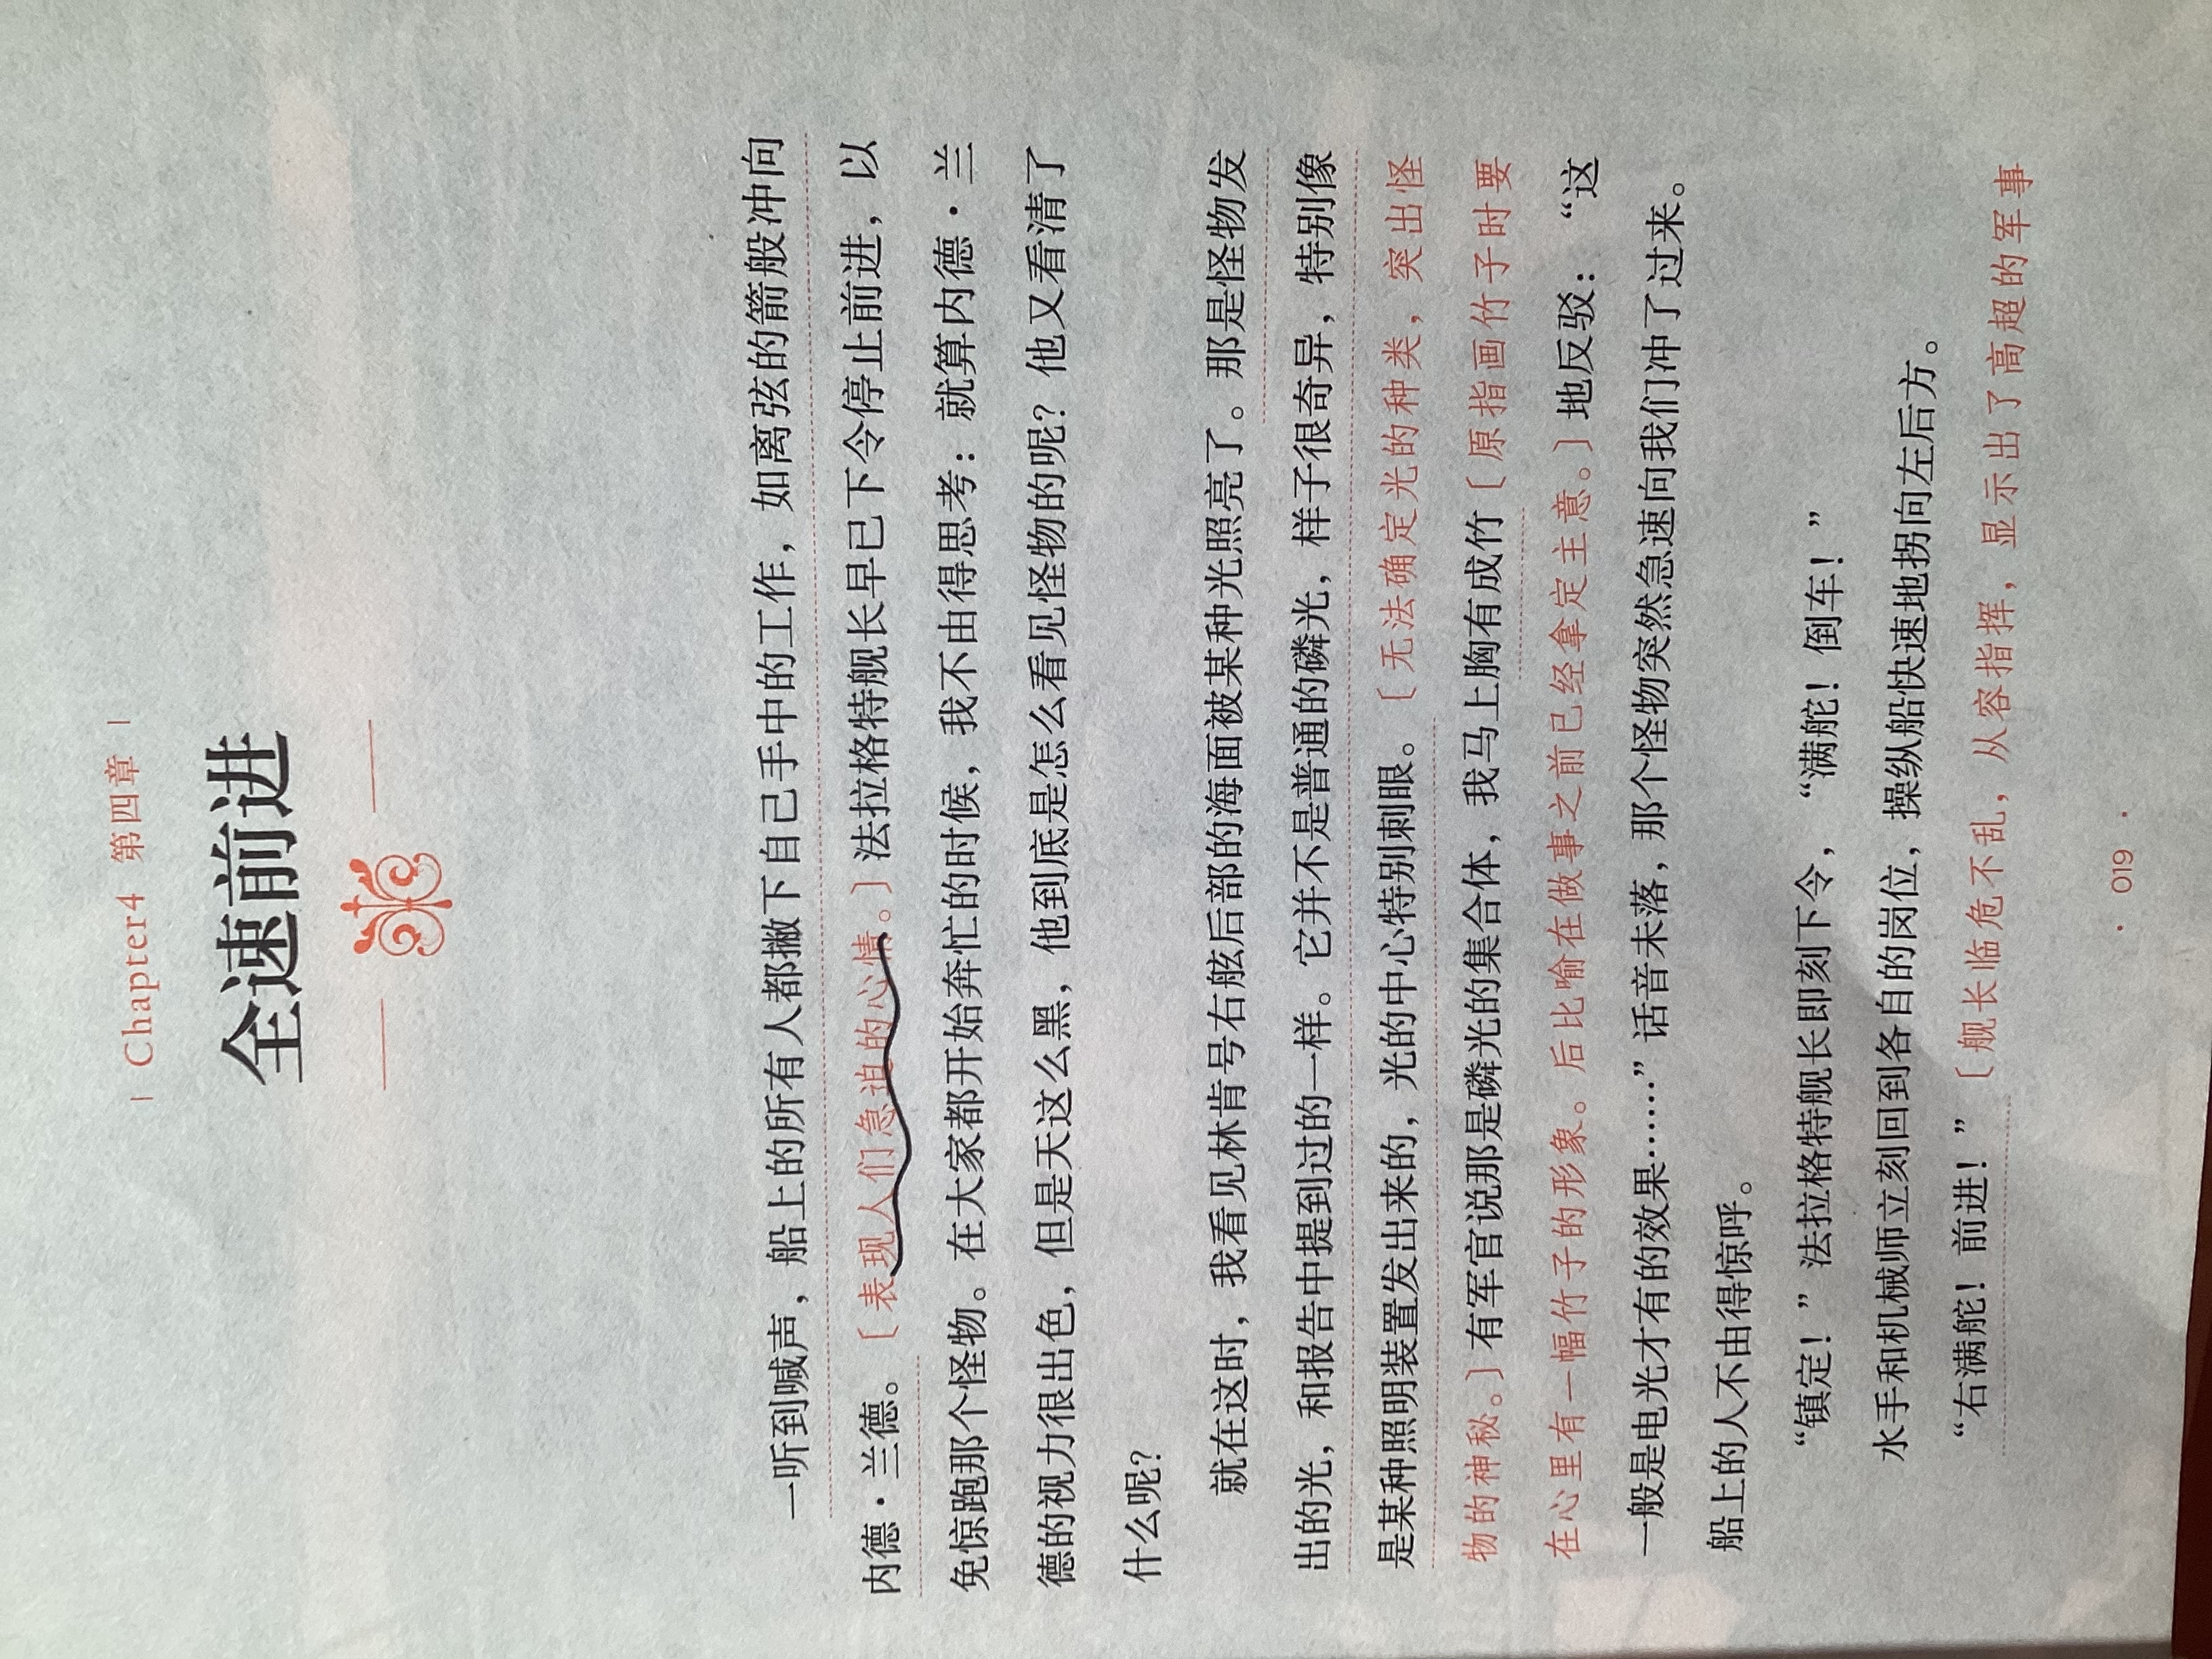 | Chapter4 第四章 |
全速前进
一听到喊声，船上的所有人都撇下自己手中的工作，如离弦的箭般冲向
内德·兰德。〔表现人们急迫的心情。〕法拉格特舰长早已下令停止前进，以
免惊跑那个怪物。在大家都开始奔忙的时候，我不由得思考：就算内德·兰
德的视力很出色，但是天这么黑，他到底是怎么看见怪物的呢？他又看清了
什么呢？
就在这时，我看见林肯号右舷后部的海面被某种光照亮了。那是怪物发
出的光，和报告中提到过的一样。它并不是普通的磷光，样子很奇异，特别像
是某种照明装置发出来的，光的中心特别刺眼。〔无法确定光的种类，突出怪
物的神秘。〕有军官说那是磷光的集合体，我马上胸有成竹〔原指画竹子时要
在心里有一幅竹子的形象。后比喻在做事之前已经拿定主意。〕地反驳：“这
一般是电光才有的效果……”话音未落，那个怪物突然急速向我们冲了过来。
船上的人不由得惊呼。
“镇定！”法拉格特舰长即刻下令，“满舵！倒车！”
水手和机械师立刻回到各自的岗位，操纵船快速地拐向左后方。
“右满舵！前进！”〔舰长临危不乱，从容指挥，显示出了高超的军事
· 019 ·